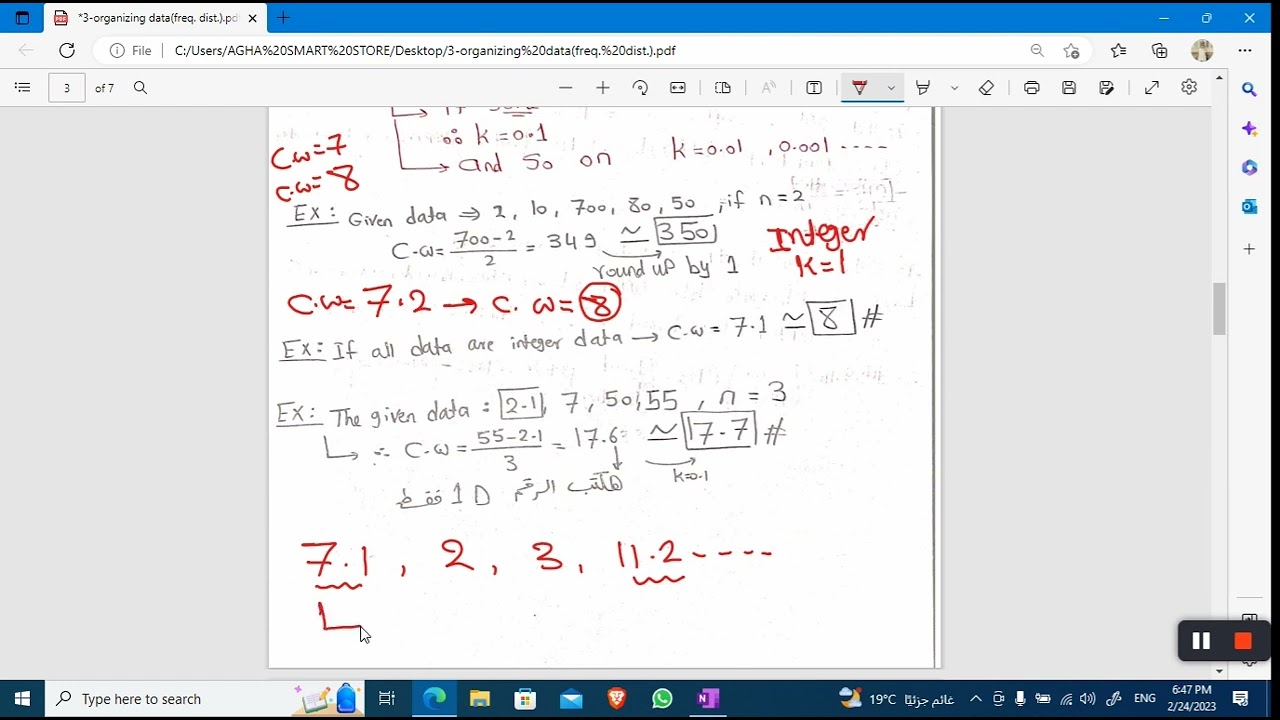 *3-organizing data(freq. dist.).pdf
File C:/Users/AGHA%20SMART%20STORE/Desktop/3-organizing%20data(freq.%20dist.).pdf
3 of 7
∴ k=0.1
and so on k=0.01 , 0.001 ----
C.w=7
C.w=8
Ex: Given data ⇒ 2, 10, 700, 80, 50 , if n=2
C.w= 700-2 / 2 = 349 ≃ 350
round up by 1
Integer
k=1
C.w= 7.2 → C.w= 8
Ex: If all data are integer data → C.w = 7.1 ≃ 8 #
Ex: The given data : 2.1, 7, 50, 55 , n = 3
∴ C.w = 55-2.1 / 3 = 17.6 ≃ 17.7 #
k=0.1
هنكتب الرقم 1D فقط
7.1 , 2 , 3 , 11.2 ----
Type here to search
19°C غائم جزئيًا
ENG
6:47 PM
2/24/2023